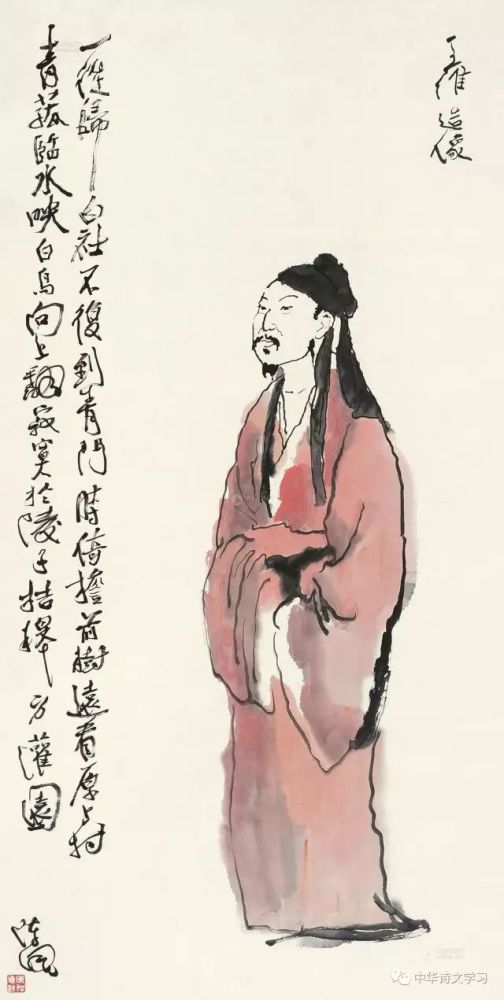 王維造像
一從歸白社不復到青門時倚檐前樹遠看原上村
青菰臨水映白鸟向上翻寂寞於陵子桔槔方灌園
中华诗文学习